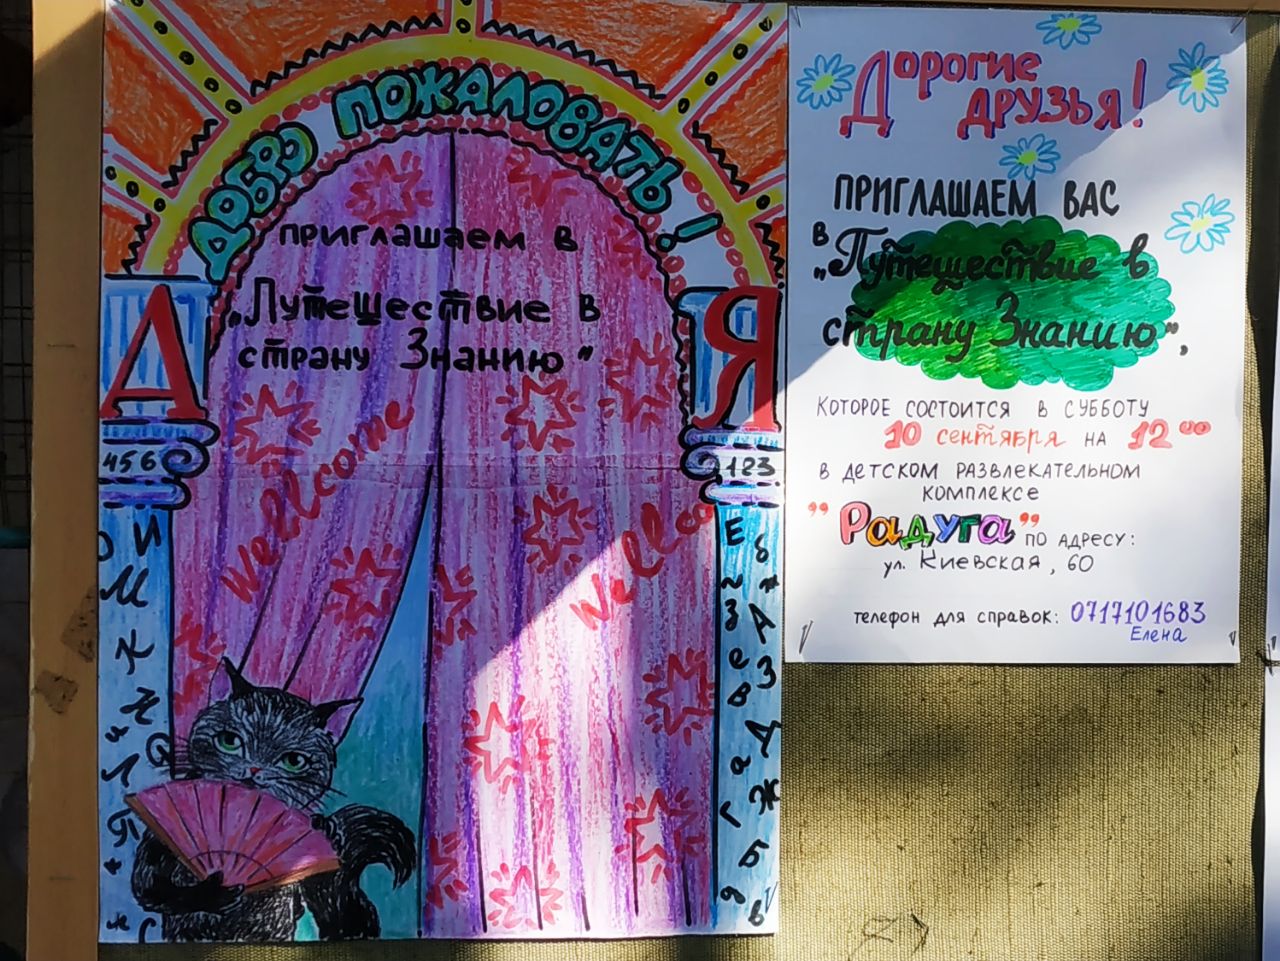 ДОБРО ПОЖАЛОВАТЬ!
ПРИГЛАШАЕМ В
„Путешествие в
страну Знанию”
А
Я
456
123
Wellcome
Wellco
Дорогие
друзья!
ПРИГЛАШАЕМ ВАС
в „Путешествие в
страну Знанию”,
КОТОРОЕ СОСТОИТСЯ В СУББОТУ
10 сентября НА 12⁰⁰
В ДЕТСКОМ РАЗВЛЕКАТЕЛЬНОМ
КОМПЛЕКСЕ
”Радуга” ПО АДРЕСУ:
ул. Киевская, 60
ТЕЛЕФОН ДЛЯ СПРАВОК: 0717101683
Елена